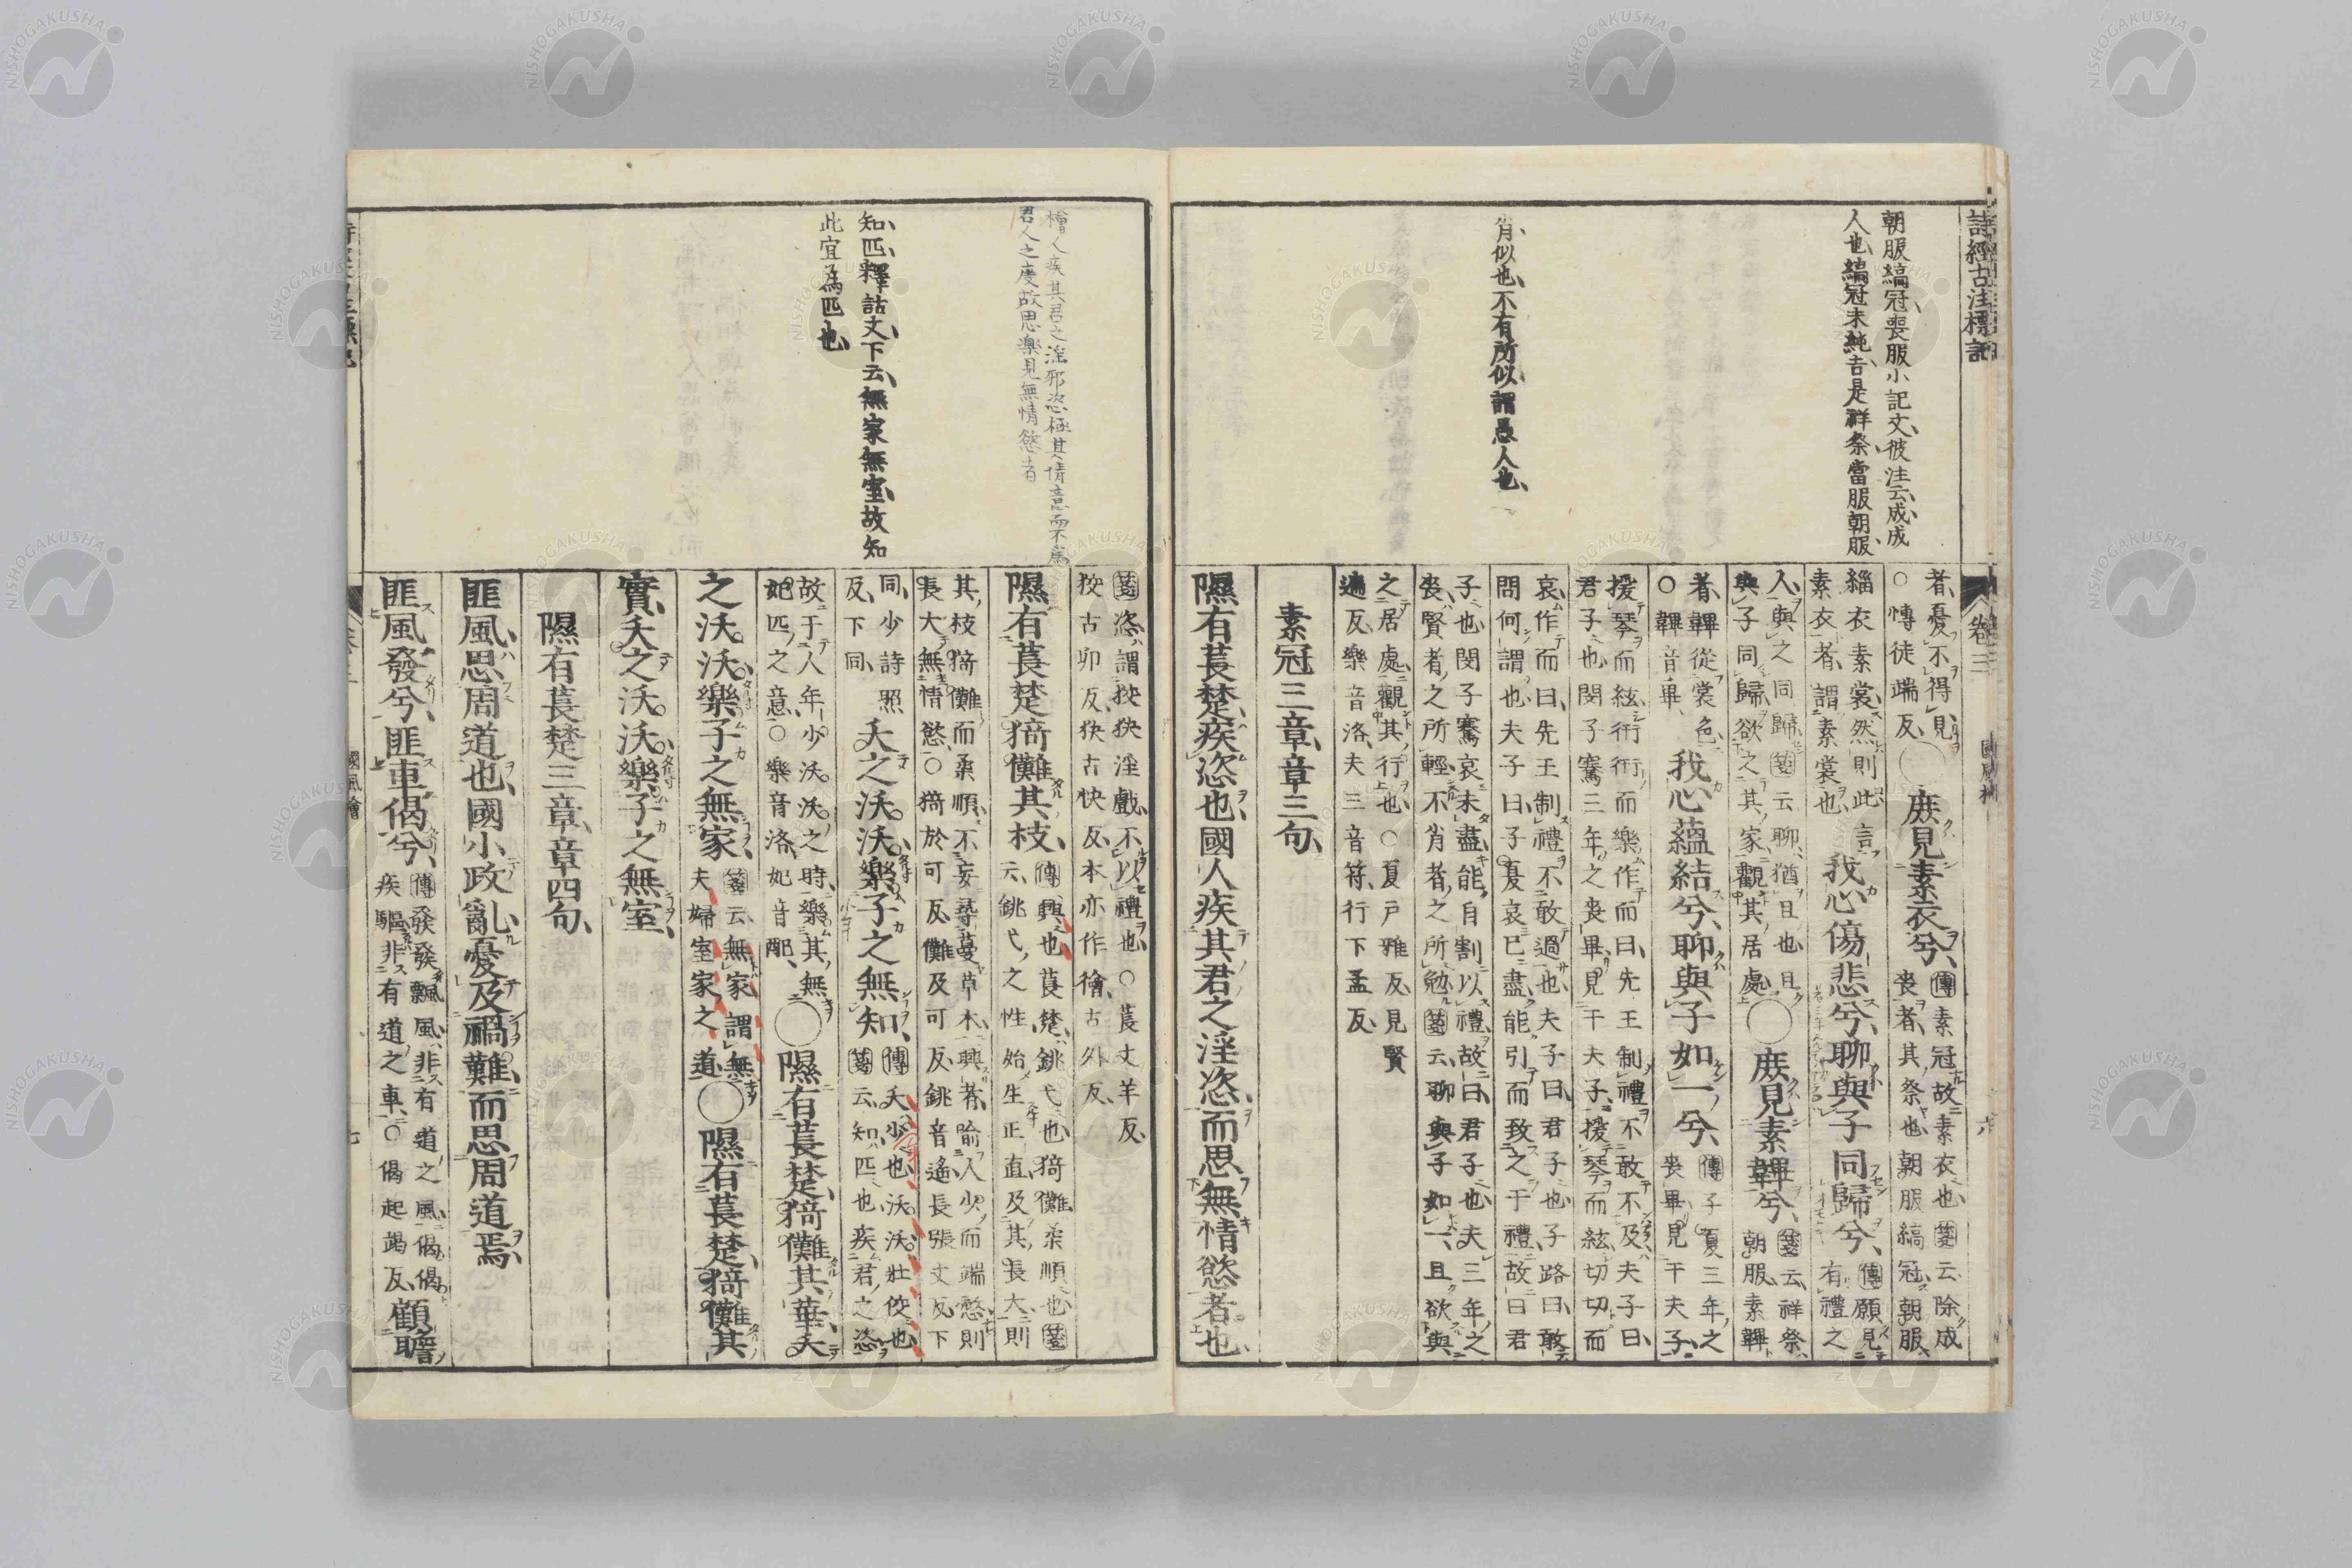 詩經古注標記
朝服縞冠喪服小記文彼注云成成
人也縞冠未純吉是祥祭當服朝服
肖似也不有所似謂愚人也
卷三
六
者憂不得見
○慱徒端反
○庶見素衣兮
傳素冠故素衣也箋云除成
喪者其祭也朝服縞冠朝服
緇衣素裳然則此言
素衣者謂素裳也
我心傷悲兮聊與子同歸兮
傳願見
有禮之
人與之同歸箋云聊猶且也且
與子同歸欲之其家觀其居處
○庶見素韠兮
箋云祥祭
朝服素韠
者韠從裳色
○韠音畢
我心蘊結兮聊與子如一兮
傳子夏三年之
喪畢見于夫子
援琴而絃衎衎而樂作而曰先王制禮不敢不及夫子曰
君子也閔子騫三年之喪畢見于夫子援琴而絃切切而
哀作而曰先王制禮不敢過也夫子曰君子也子路曰敢
問何謂也夫子曰子夏哀已盡能引而致之于禮故曰君
子也閔子騫哀未盡能自割以禮故曰君子也夫三年之
喪賢者之所輕不肖者之所勉箋云聊與子如一且欲與
之居處觀其行也○夏戸雅反見賢
遍反樂音洛夫三音符行下孟反
素冠三章章三句
隰有萇楚疾恣也國人疾其君之淫恣而思無情慾者也
檜人疾其君之淫邪恣極其情意而不爲
君人之度故思樂見無情慾者
知匹釋詁文下云無家無室故知
此宜爲匹也
箋恣謂狡狹淫戲不以禮也○萇丈羊反
狡古卯反狹古快反本亦作檜古外反
隰有萇楚猗儺其枝
傳興也萇楚銚弋也猗儺柔順也箋
云銚弋之性始生正直及其長大則
其枝猗儺而柔順不妄尋蔓草木興者喻人少而端慤則
長大無情慾○猗於可反儺及可反銚音遙長張丈反下
同少詩照
反下同
夭之沃沃樂子之無知
傳夭少也沃沃壯佼也
箋云知匹也疾君之恣
故于人年少沃沃之時樂其無
妃匹之意○樂音洛妃音配
○隰有萇楚猗儺其華夭
之沃沃樂子之無家
箋云無家謂無
夫婦室家之道
○隰有萇楚猗儺其
實夭之沃沃樂子之無室
隰有萇楚三章章四句
匪風思周道也國小政亂憂及禍難而思周道焉
匪風發兮匪車偈兮
傳發發飄風非有道之風偈偈
疾驅非有道之車○偈起竭反
顧瞻
國風檜
七